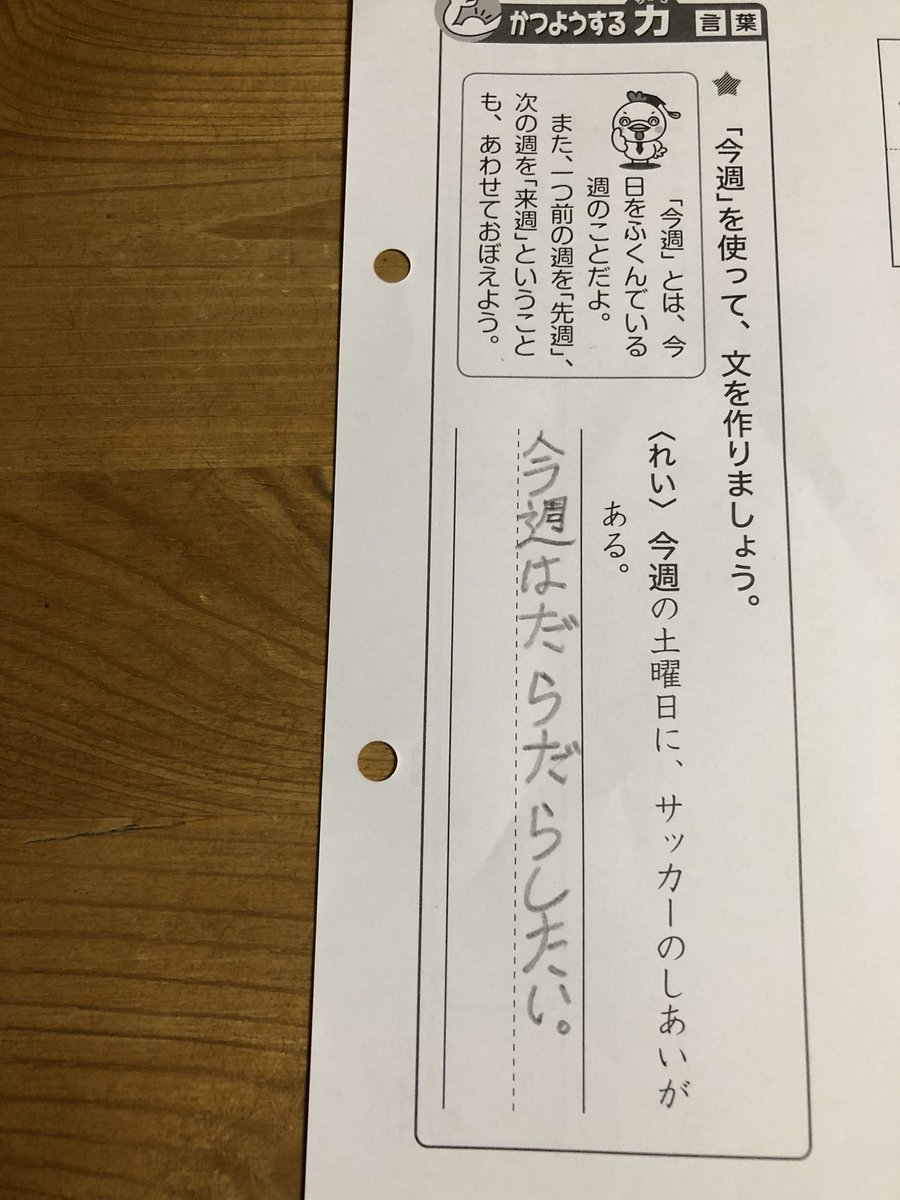 かつようする力 言葉
★ 「今週」を使って、文を作りましょう。
「今週」とは、今
日をふくんでいる
週のことだよ。
また、一つ前の週を「先週」、
次の週を「来週」ということ
も、あわせておぼえよう。
〈れい〉 今週の土曜日に、サッカーのしあいが
ある。
今週はだらだらしたい。